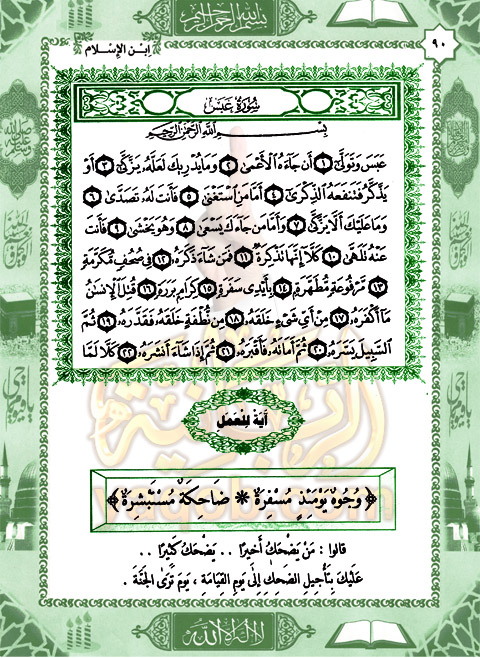 بسم الله الرحمن الرحيم
٩٠
ابن الإسلام
سُورَةُ عَبَسَ
بِسْمِ اللَّهِ الرَّحْمَنِ الرَّحِيمِ
عَبَسَ وَتَوَلَّىٰٓ ١ أَن جَآءَهُ ٱلْأَعْمَىٰ ٢ وَمَا يُدْرِيكَ لَعَلَّهُۥ يَزَّكَّىٰٓ ٣ أَوْ
يَذَّكَّرُ فَتَنفَعَهُ ٱلذِّكْرَىٰٓ ٤ أَمَّا مَنِ ٱسْتَغْنَىٰ ٥ فَأَنتَ لَهُۥ تَصَدَّىٰ ٦
وَمَا عَلَيْكَ أَلَّا يَزَّكَّىٰ ٧ وَأَمَّا مَن جَآءَكَ يَسْعَىٰ ٨ وَهُوَ يَخْشَىٰ ٩ فَأَنتَ
عَنْهُ تَلَهَّىٰ ١٠ كَلَّآ إِنَّهَا تَذْكِرَةٌ ١١ فَمَن شَآءَ ذَكَرَهُۥ ١٢ فِى صُحُفٍ مُّكَرَّمَةٍ
١٣ مَّرْفُوعَةٍ مُّطَهَّرَةٍۭ ١٤ بِأَيْدِى سَفَرَةٍ ١٥ كِرَامٍۭ بَرَرَةٍ ١٦ قُتِلَ ٱلْإِنسَٰنُ
مَآ أَكْفَرَهُۥ ١٧ مِنْ أَىِّ شَىْءٍ خَلَقَهُۥ ١٨ مِن نُّطْفَةٍ خَلَقَهُۥ فَقَدَّرَهُۥ ١٩ ثُمَّ
ٱلسَّبِيلَ يَسَّرَهُۥ ٢٠ ثُمَّ أَمَاتَهُۥ فَأَقْبَرَهُۥ ٢١ ثُمَّ إِذَا شَآءَ أَنشَرَهُۥ ٢٢ كَلَّا لَمَّا
آيَةٌ لِلْعَمَلِ
﴿ وُجُوهٌ يَوْمَئِذٍ مُسْفِرَةٌ * ضَاحِكَةٌ مُسْتَبْشِرَةٌ ﴾
قالوا : مَنْ يَضْحَكُ أَخيرًا . . يَضْحَكُ كَثيرًا . .
عَلَيْكَ بِتَأْجِيلِ الضَّحِكِ إِلَى يَوْمِ القِيَامَةِ ، يَوْمَ تَرَى الجَنَّةَ .
لا إله إلا الله